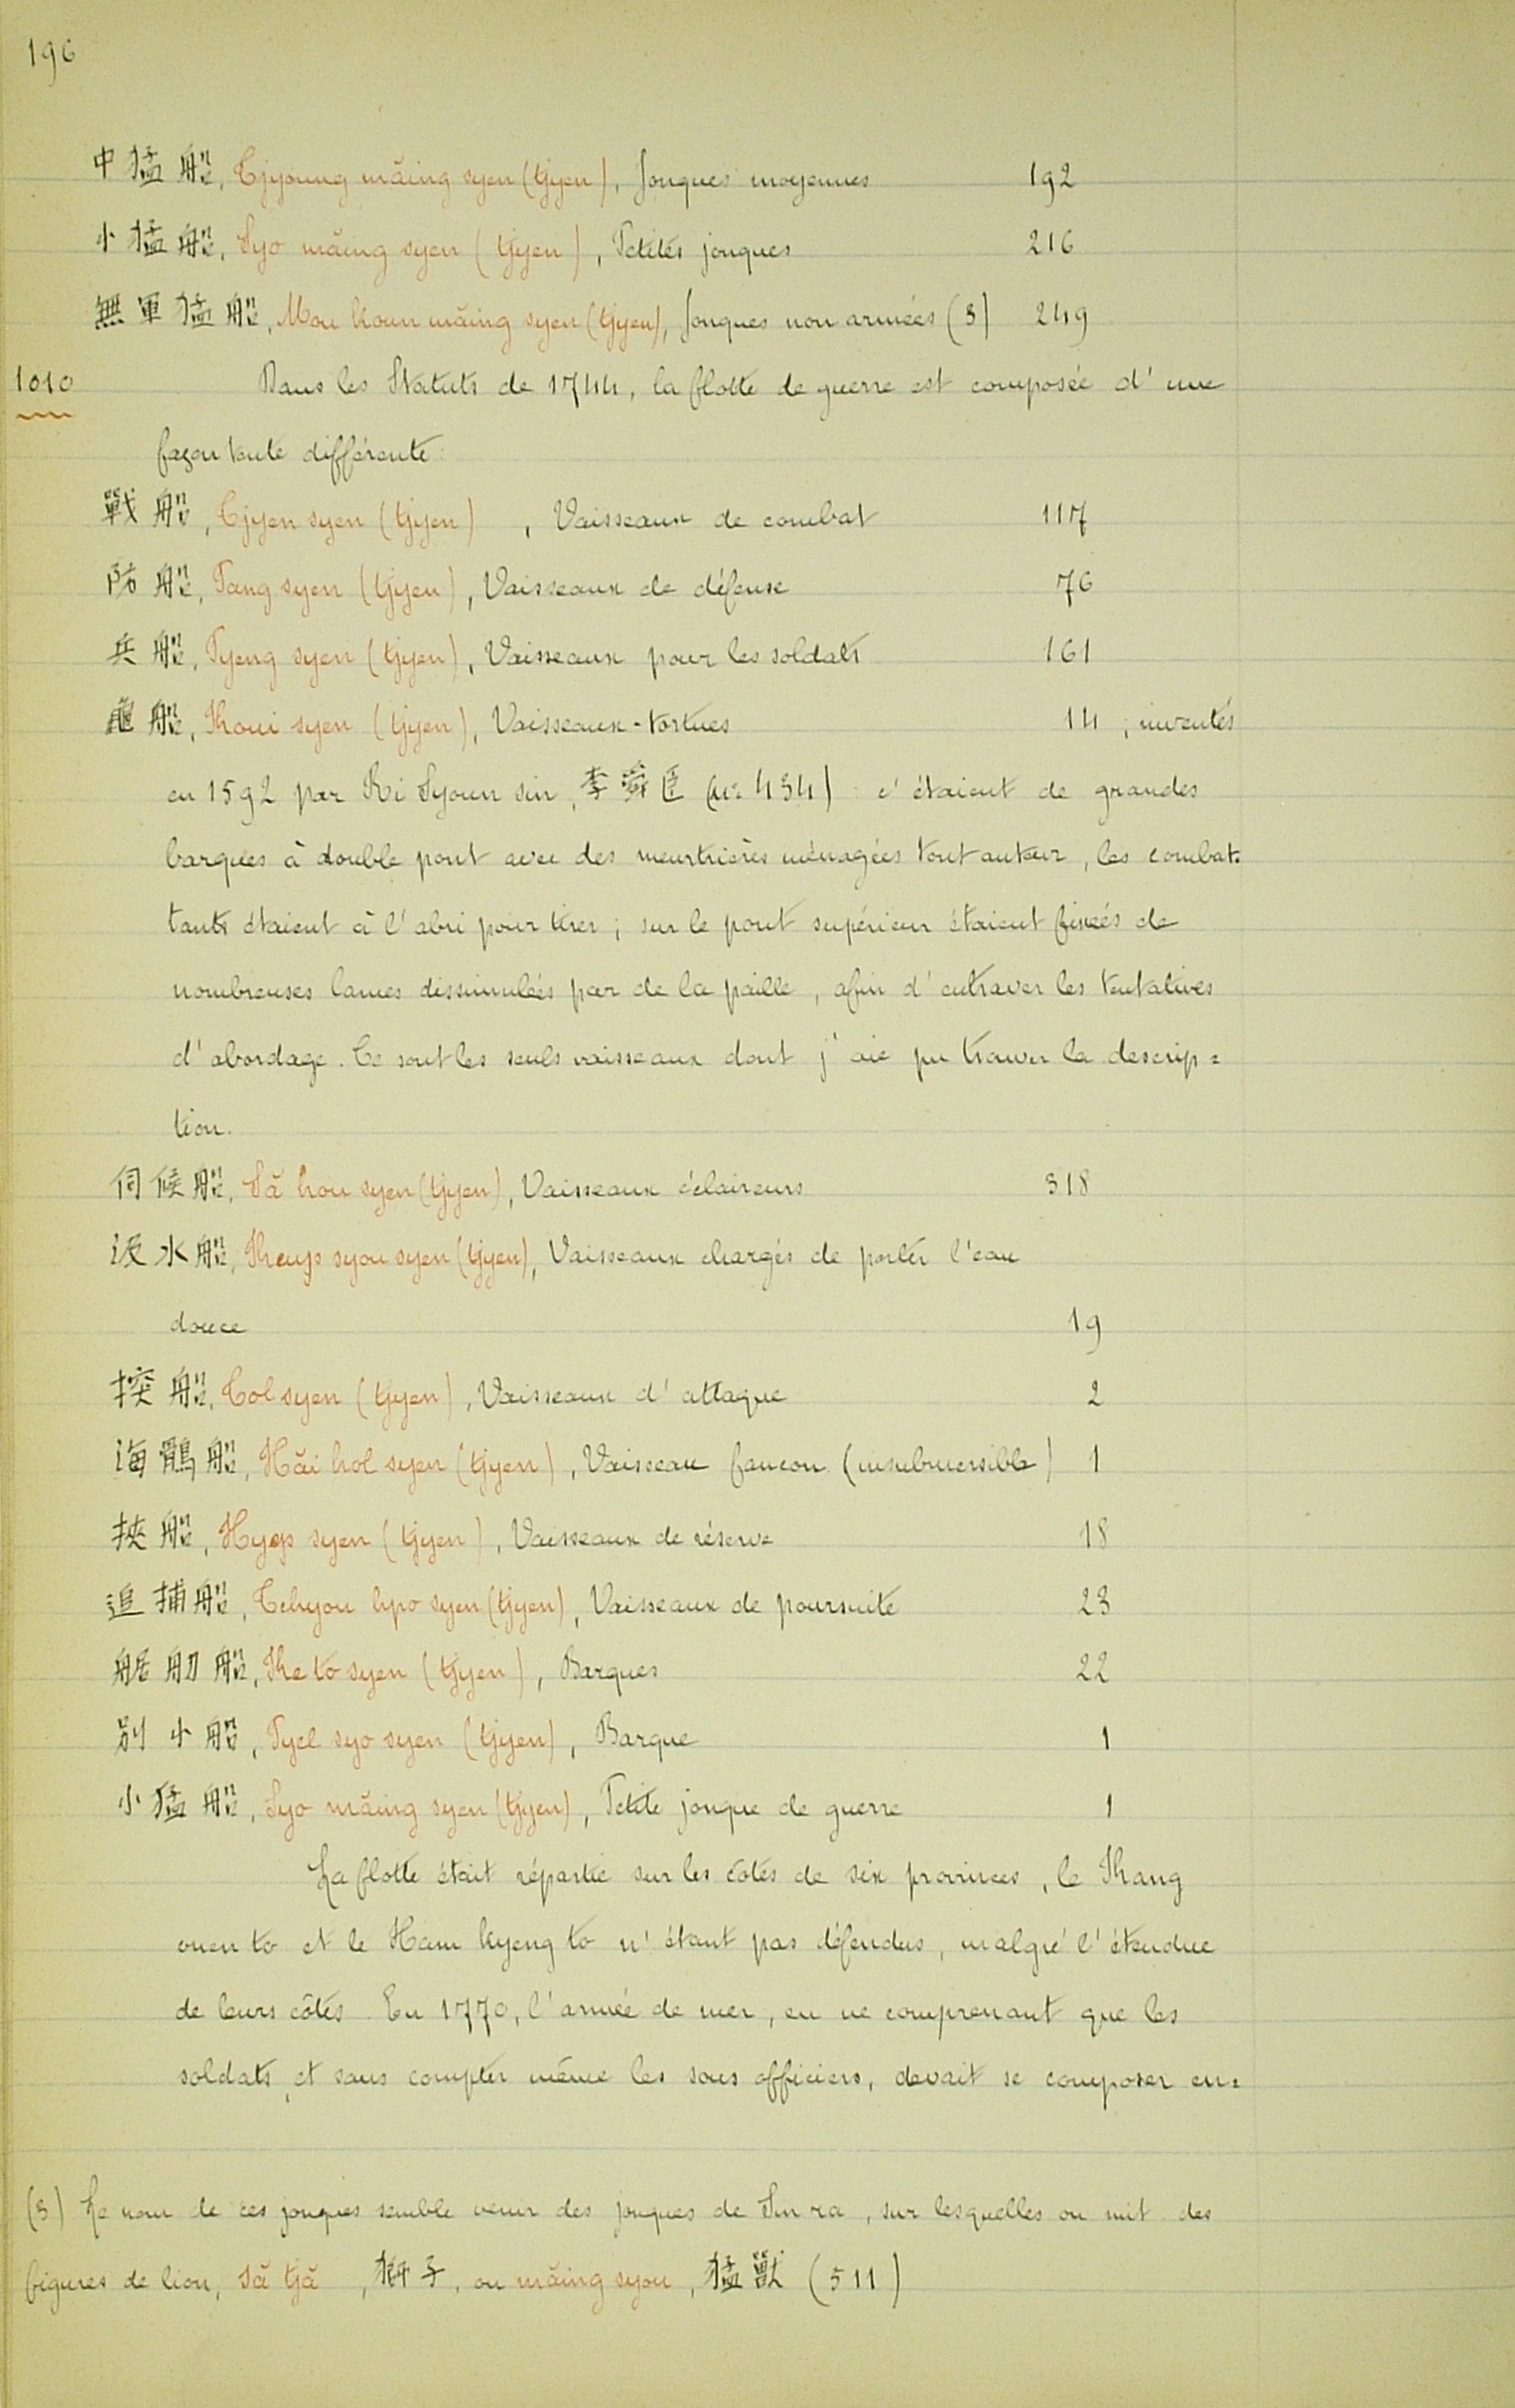 196
中猛船, Tjyoung măing syen (tjyen), Jonques moyennes 192
小猛船, Syo măing syen (tjyen), Petites jonques 216
無軍猛船, Mou koun măing syen (tjyen), Jonques non armées (3) 249
1010 Dans les Statuts de 1744, la flotte de guerre est composée d'une
façon toute différente:
戰船, Tjyen syen (tjyen), Vaisseaux de combat 117
防船, Pang syen (tjyen), Vaisseaux de défense 76
兵船, Pyeng syen (tjyen), Vaisseaux pour les soldats 161
龜船, Koui syen (tjyen), Vaisseaux-tortues 14 ; inventés
en 1592 par Ri Syoun sin, 李舜臣 (nº 434) : c'étaient de grandes
barques à double pont avec des meurtrières ménagées tout autour, les combat=
tants étaient à l'abri pour tirer ; sur le pont supérieur étaient fixées de
nombreuses lames dissimulées par de la paille, afin d'entraver les tentatives
d'abordage. Ce sont les seuls vaisseaux dont j'aie pu trouver la descrip=
tion.
伺候船, Să hou syen (tjyen), Vaisseaux éclaireurs 318
汲水船, Keup syou syen (tjyen), Vaisseaux chargés de porter l'eau
douce 19
揬船, Tol syen (tjyen), Vaisseaux d'attaque 2
海鶻船, Hăi hol syen (tjyen), Vaisseau faucon (insubmersible) 1
挾船, Hyep syen (tjyen), Vaisseaux de réserve 18
追捕船, Tchyou hpo syen (tjyen), Vaisseaux de poursuite 23
艍舠船, Ke to syen (tjyen), Barques 22
別小船, Pyel syo syen (tjyen), Barque 1
小猛船, Syo măing syen (tjyen), Petite jonque de guerre 1
La flotte était répartie sur les côtes de six provinces, le Kang
ouen to et le Ham kyeng to n'étant pas défendus, malgré l'étendue
de leurs côtes. En 1770, l'armée de mer, en ne comprenant que les
soldats, et sans compter même les sous officiers, devait se composer en=
(3) Le nom de ces jonques semble venir des jonques de Sin ra, sur lesquelles on mit des
figures de lion, să tjă, 獅子, ou măing syou, 猛獸 (511)